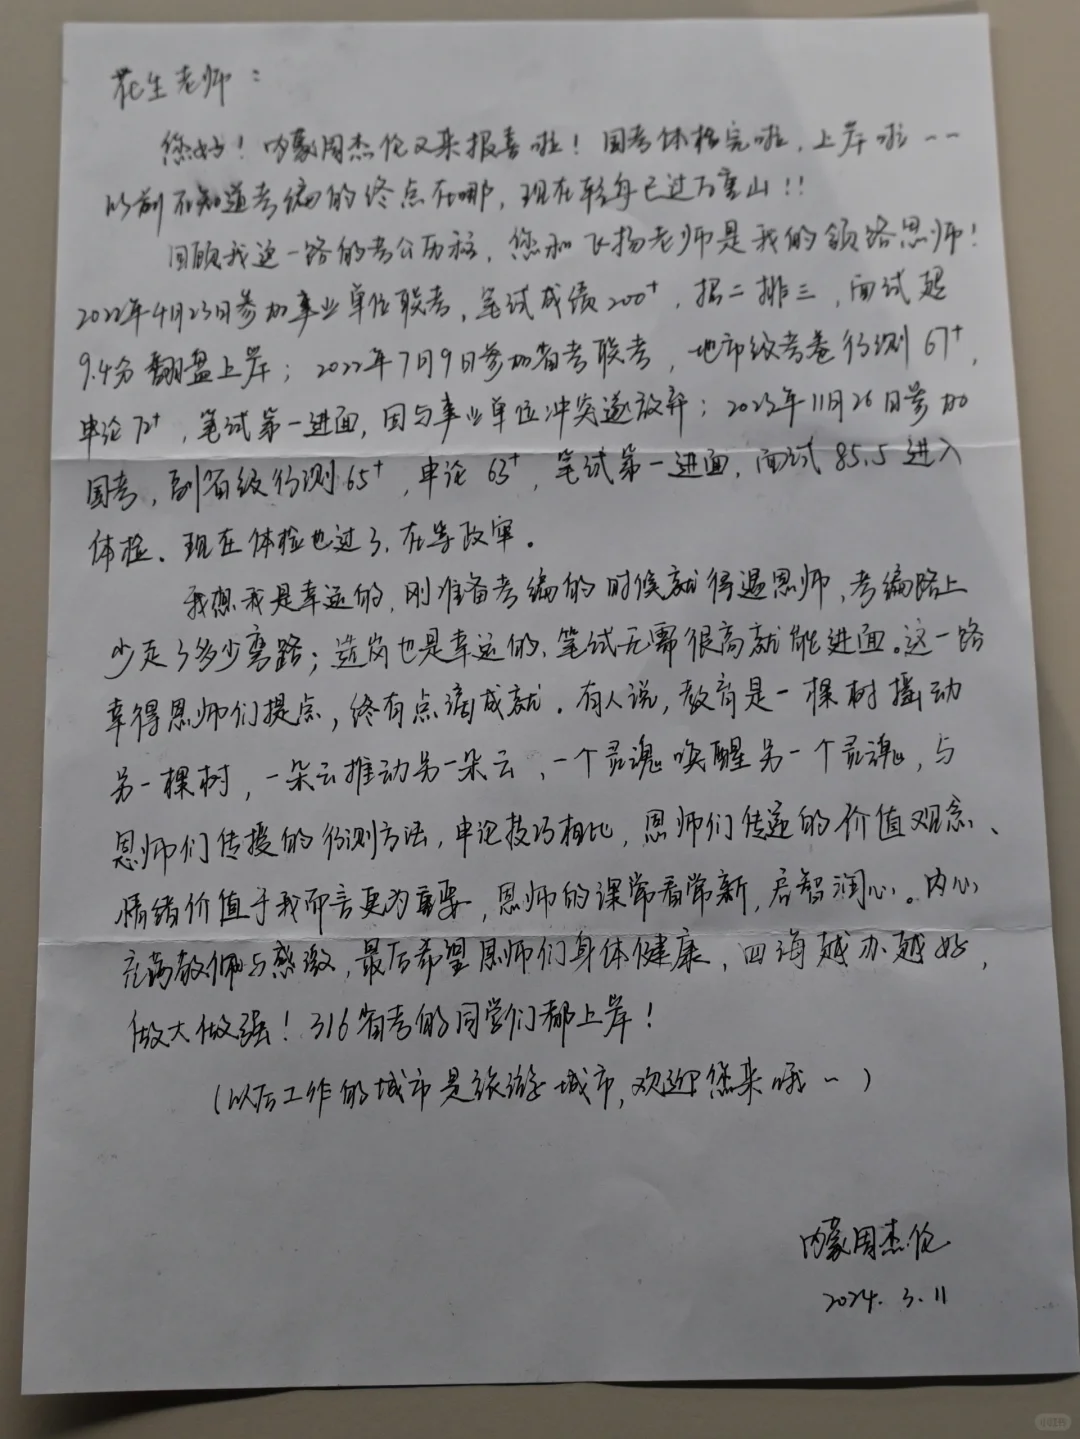 花生老师：
您好！内蒙周杰伦又来报喜啦！国考体检完啦，上岸啦~~
以前不知道考编的终点在哪，现在轻舟已过万重山！！
回顾我这一路的考公历程，您和飞扬老师是我的领路恩师！
2022年4月23日参加事业单位联考，笔试成绩200+，招二排三，面试超
9.4分翻盘上岸；2022年7月9日参加省考联考，地市级考卷行测67+，
申论72+，笔试第一进面，因与事业单位冲突遂放弃；2023年11月26日参加
国考，副省级行测65+，申论63+，笔试第一进面，面试85.5进入
体检、现在体检也过了，在等政审。
我想我是幸运的，刚准备考编的时候就得遇恩师，考编路上
少走了多少弯路；选岗也是幸运的、笔试无需很高就能进面。这一路
幸得恩师们提点，终有点滴成就。有人说，教育是一棵树摇动
另一棵树，一朵云推动另一朵云、一个灵魂唤醒另一个灵魂，与
恩师们传授的行测方法，申论技巧相比，恩师们传递的价值观念、
情绪价值于我而言更为重要，恩师的课常看常新，启智润心。内心
充满敬佩与感激，最后希望恩师们身体健康，四海越办越好，
做大做强！316省考的同学们都上岸！
（以后工作的城市是旅游城市，欢迎您来哦~）
内蒙周杰伦
2024.3.11
小红书